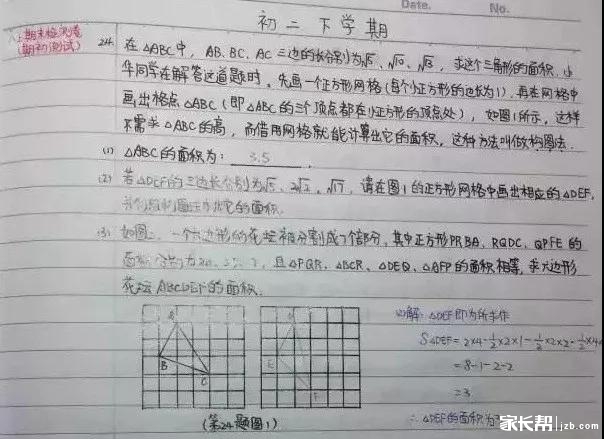 Date.
No.
初二下学期
(期初测试)
24. 在△ABC中,AB、BC、AC三边的长分别为√5、√10、√13,求这个三角形的面积.小
华同学在解答这道题时,先画一个正方形网格(每个小正方形的边长为1),再在网格中
画出格点△ABC(即△ABC的三个顶点都在小正方形的顶点处),如图1所示,这样
不需求△ABC的高,而借用网格就能计算出它的面积,这种方法叫做构图法.
(1) △ABC的面积为: 3.5 .
(2) 若△DEF的三边长分别为√5、2√2、√17,请在图1的正方形网格中画出相应的△DEF,
它的面积.
(3) 如图2,一个六边形的花坛被分割成7个部分,其中正方形PRBA、RQDC、QPFE的
且△PQR、△BCR、△DEQ、△AFP的面积相等,求六边形
花坛ABCDEF的面积.
A
B
C
E
F
(第24题图1)
(2)解:△DEF即为所求作
S△DEF=2×4-½×2×1-½×2×2-½×4×
=8-1-2-2
=3
∴△DEF的面积为
家长帮 jzb.com